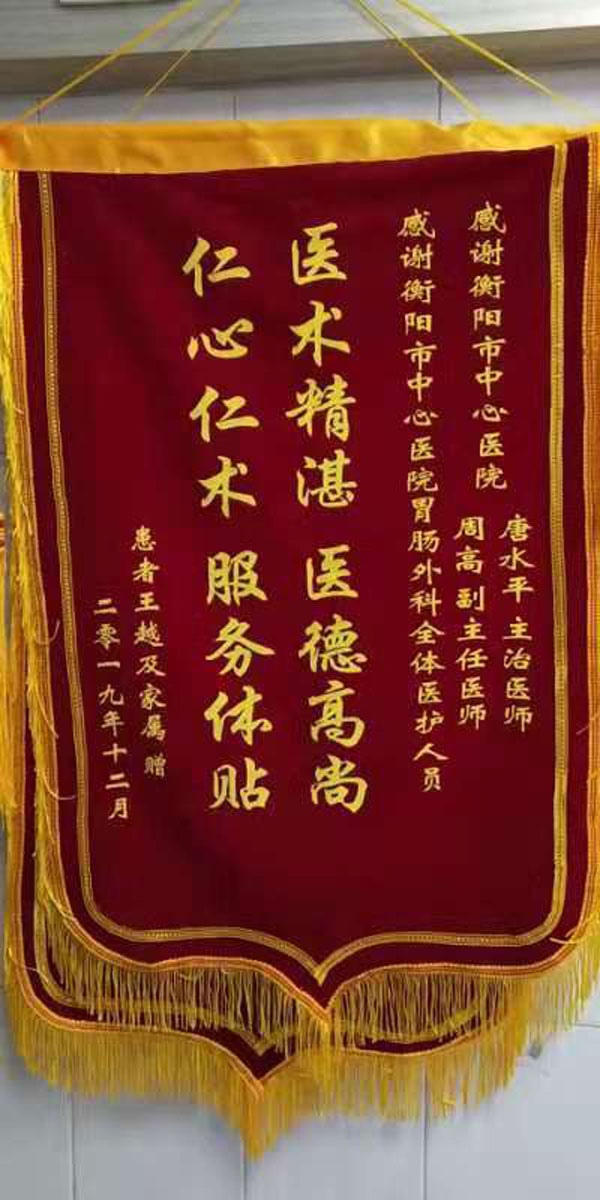 感谢衡阳市中心医院
唐水平主治医师
周高副主任医师
感谢衡阳市中心医院胃肠外科全体医护人员
医术精湛 医德高尚
仁心仁术 服务体贴
患者王越及家属 赠
二零一九年十二月